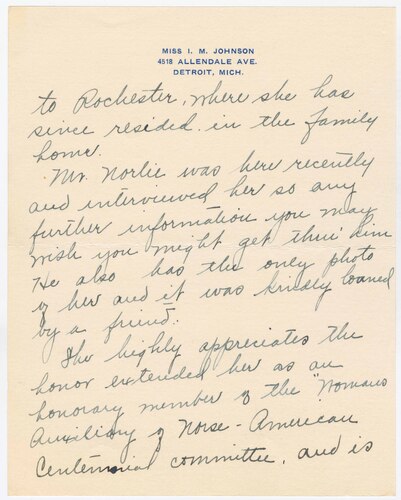 MISS I. M. JOHNSON
4518 ALLENDALE AVE.
DETROIT, MICH.
to Rochester, where she has
since resided in the family
home.
Mr. Norlie was here recently
and interviewed her so any
further information you may
wish you might get thru' him
He also has the only photo
of her and it was kindly loaned
by a friend.
She highly appreciates the
honor extended her as an
honorary member of the "Womans
Auxiliary of Norse-American
Centennial committee, and is